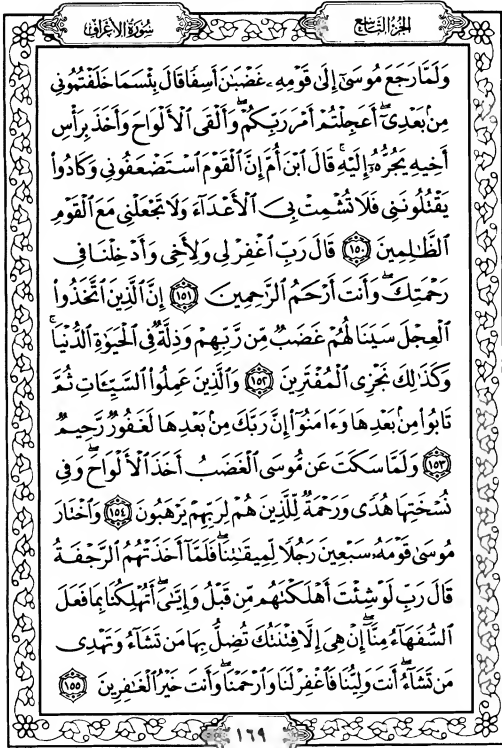 سورة الأعراف
الجزء التاسع
وَلَمَّا رَجَعَ مُوسَىٰٓ إِلَىٰ قَوْمِهِۦ غَضْبَٰنَ أَسِفًا قَالَ بِئْسَمَا خَلَفْتُمُونِى
مِنۢ بَعْدِىٓۖ أَعَجِلْتُمْ أَمْرَ رَبِّكُمْۖ وَأَلْقَى ٱلْأَلْوَاحَ وَأَخَذَ بِرَأْسِ
أَخِيهِ يَجُرُّهُۥٓ إِلَيْهِۚ قَالَ ٱبْنَ أُمَّ إِنَّ ٱلْقَوْمَ ٱسْتَضْعَفُونِى وَكَادُوا۟
يَقْتُلُونَنِى فَلَا تُشْمِتْ بِىَ ٱلْأَعْدَآءَ وَلَا تَجْعَلْنِى مَعَ ٱلْقَوْمِ
ٱلظَّٰلِمِينَ ١٥٠ قَالَ رَبِّ ٱغْفِرْ لِى وَلِأَخِى وَأَدْخِلْنَا فِى
رَحْمَتِكَۖ وَأَنتَ أَرْحَمُ ٱلرَّٰحِمِينَ ١٥١ إِنَّ ٱلَّذِينَ ٱتَّخَذُوا۟
ٱلْعِجْلَ سَيَنَالُهُمْ غَضَبٌ مِّن رَّبِّهِمْ وَذِلَّةٌ فِى ٱلْحَيَوٰةِ ٱلدُّنْيَاۚ
وَكَذَٰلِكَ نَجْزِى ٱلْمُفْتَرِينَ ١٥٢ وَٱلَّذِينَ عَمِلُوا۟ ٱلسَّيِّـَٔاتِ ثُمَّ
تَابُوا۟ مِنۢ بَعْدِهَا وَءَامَنُوٓا۟ إِنَّ رَبَّكَ مِنۢ بَعْدِهَا لَغَفُورٌ رَّحِيمٌ
١٥٣ وَلَمَّا سَكَتَ عَن مُّوسَى ٱلْغَضَبُ أَخَذَ ٱلْأَلْوَاحَۖ وَفِى
نُسْخَتِهَا هُدًى وَرَحْمَةٌ لِّلَّذِينَ هُمْ لِرَبِّهِمْ يَرْهَبُونَ ١٥٤ وَٱخْتَارَ
مُوسَىٰ قَوْمَهُۥ سَبْعِينَ رَجُلًا لِّمِيقَٰتِنَاۖ فَلَمَّآ أَخَذَتْهُمُ ٱلرَّجْفَةُ
قَالَ رَبِّ لَوْ شِئْتَ أَهْلَكْتَهُم مِّن قَبْلُ وَإِيَّٰىَۖ أَتُهْلِكُنَا بِمَا فَعَلَ
ٱلسُّفَهَآءُ مِنَّآۖ إِنْ هِىَ إِلَّا فِتْنَتُكَ تُضِلُّ بِهَا مَن تَشَآءُ وَتَهْدِى
مَن تَشَآءُۖ أَنتَ وَلِيُّنَا فَٱغْفِرْ لَنَا وَٱرْحَمْنَاۖ وَأَنتَ خَيْرُ ٱلْغَٰفِرِينَ ١٥٥
١٦٩